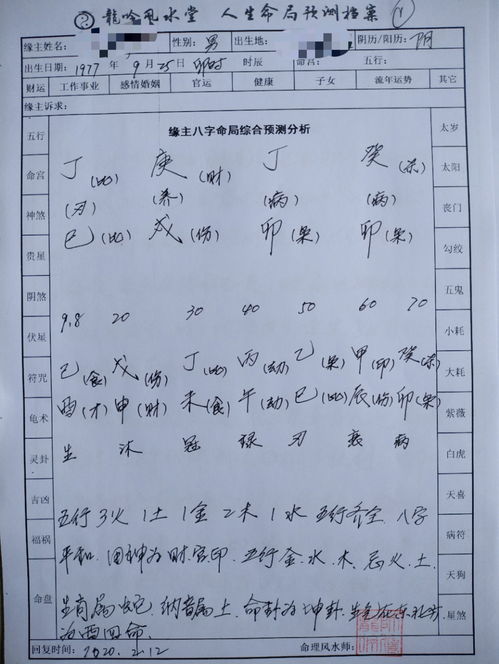 龍吟風水堂 人生命局预测档案 1
缘主姓名: 性别: 男 出生地: 阴历/阳历: 阴
出生日期: 1977 年 9 月 25日 卯时 时辰 命宫: 五行:
财运 工作事业 感情婚姻 官运 健康 子女 流年运势 其它
缘主诉求:
缘主八字命局综合预测分析
五行
命宫
神煞
贵星
阴煞
伏星
符咒
龟术
灵卦
吉凶
福祸
命盘
丁(比) 庚(财) 丁 癸(杀)
(刃) (养) (病) (病)
巳(比) 戌(伤) 卯(枭) 卯(枭)
9.8 20 30 40 50 60 70
己(食) 戊(伤) 丁(比) 丙(劫) 乙(枭) 甲(印) 癸(杀)
酉(才) 申(财) 未(食) 午(劫) 巳(比) 辰(伤) 卯(枭)
生 沐 冠 禄 刃 衰 病
五行3火1土1金2木1水 五行齐全.八字
平和.用神为财官印.五行金.水.木.忌火.土.
生肖属蛇.纳音属土.命卦为坤卦.
为西四命.
太岁
太阳
丧门
勾绞
五鬼
小耗
大耗
紫薇
白虎
天喜
病符
天狗
星煞
回复时间: 2020.2.12 命理风水师: